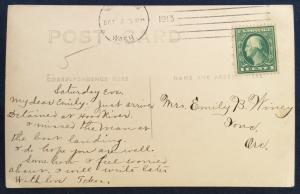 OCT
5 PM
1913
WASH
POST CARD
CORRESPONDENCE HERE
NAME AND ADDRESS
Saturday Even
My dear Emily: Just arrived
Detained at Hood River.
I missed the man at
the boat landing
I do hope you are well.
Some how I feel worried
about. I will write later
With love
Mrs. Emily B.
Ore.